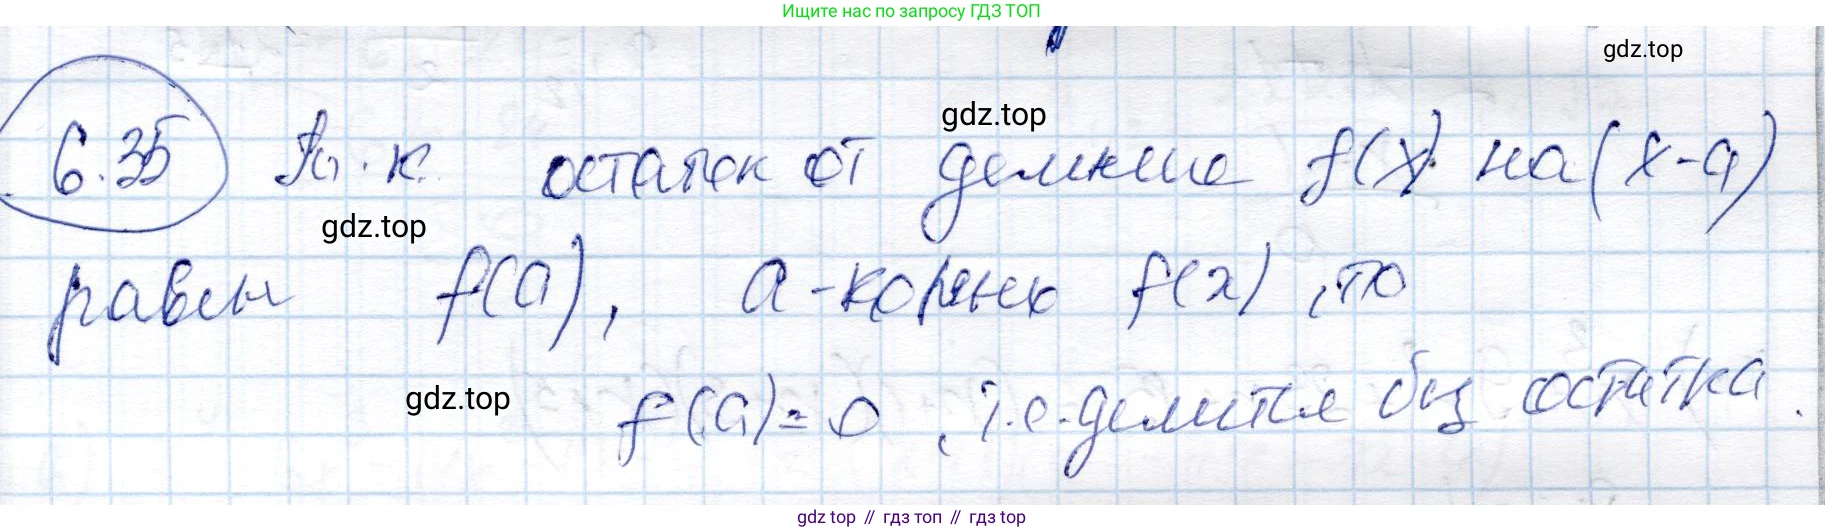 Ищите нас по запросу ГДЗ ТОП
gdz.top
gdz.top
6.35 Т.к. остаток от деления f(x) на (x-a)
gdz.top
равен f(a), a - корень f(x), то
gdz.top
f(a)=0, т.е. делится без остатка.
gdz top // гдз топ // гдз top